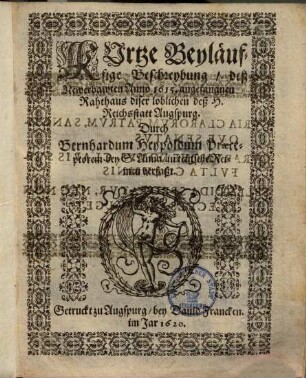 KUrtze Beyläuf-
fige Beschreybung / deß
Newerbawten Anno 1615. angefangnen
Rahthaus diser loblichen deß H.
Reichsstatt Augspurg.
Durch
Bernhardum Heypoldum Præce-
ptorem bey S. Anna, in teutsche Rei-
men verfaßt.
Getruckt zu Augspurg / bey Dauid Francken.
im Jar 1620.